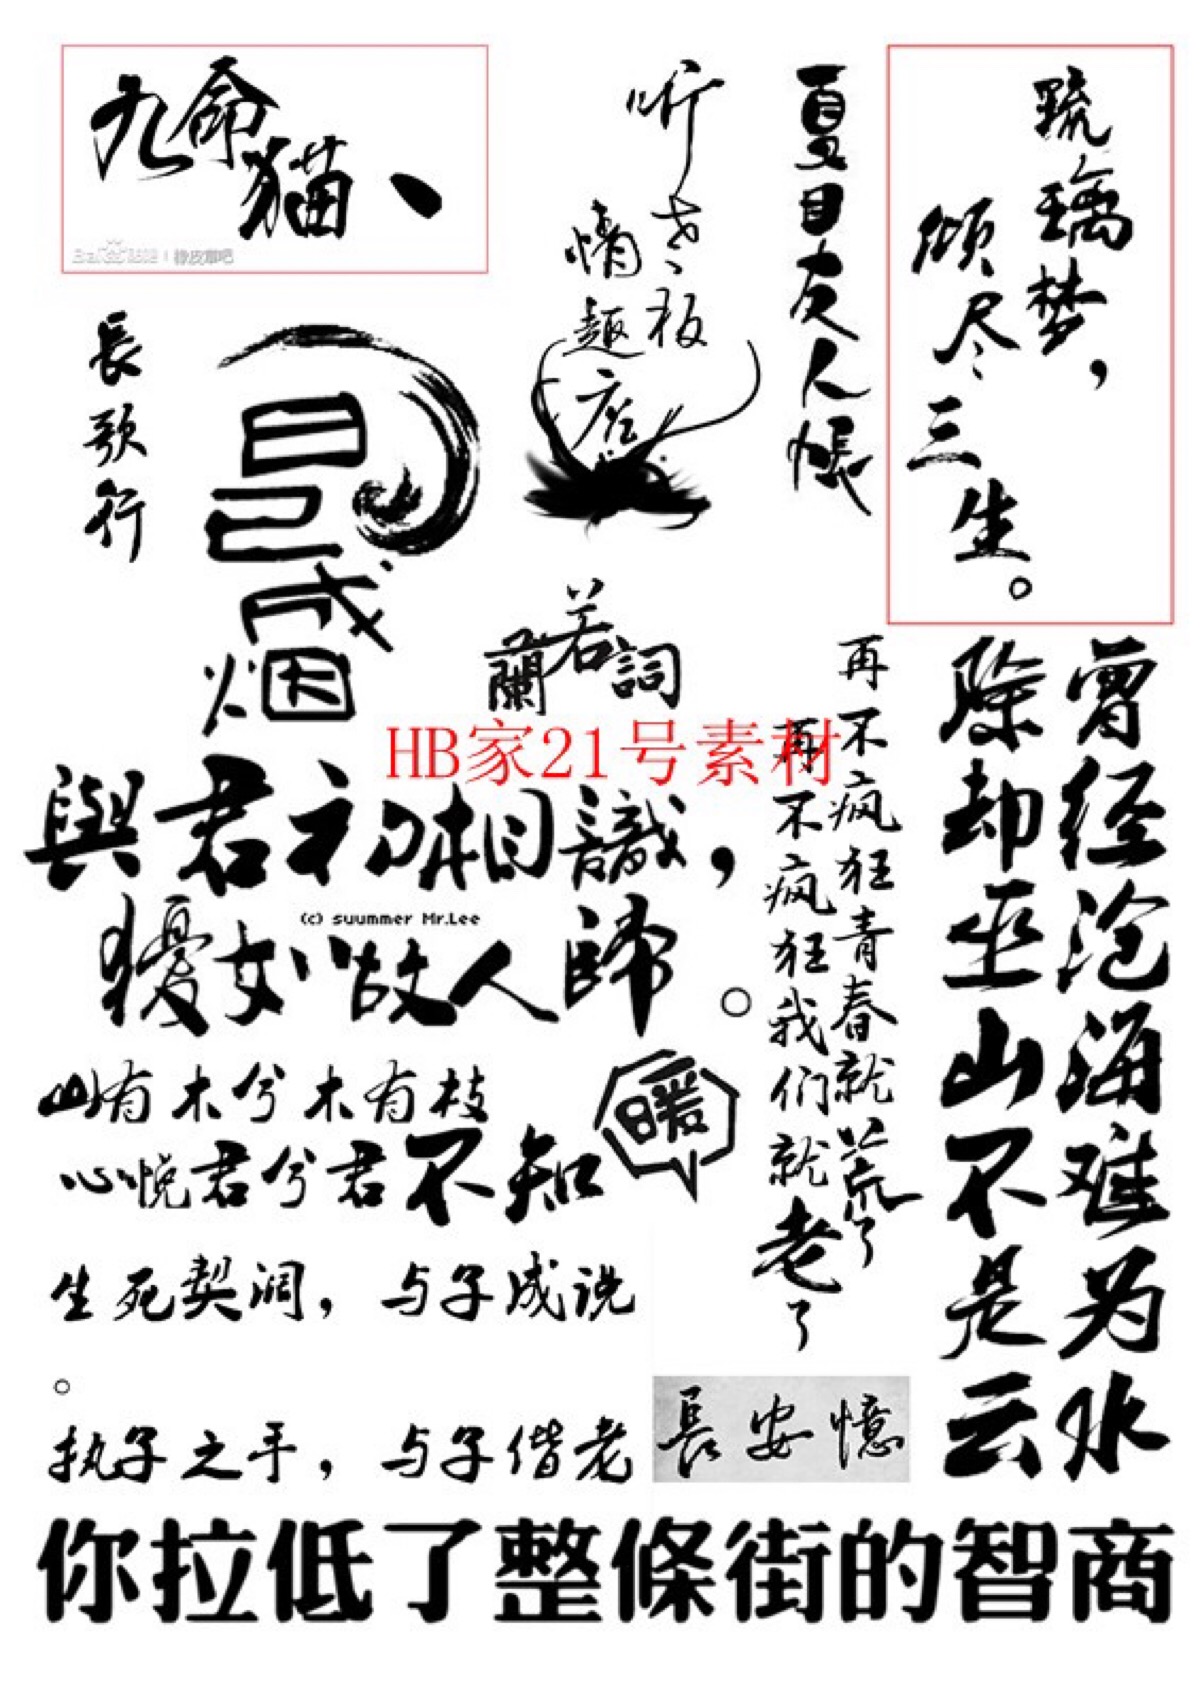 九命猫、
Baidu贴吧 | 橡皮章吧
听
老板
情趣
夏目友人帐
琉璃梦，
倾尽三生。
長歌行
昌
已成
烟
蘭若詞
HB家21号素材
再不疯狂青春就荒了
再不疯狂我们就老了
曾经沧海难为水
除却巫山不是云
與君初相識，
(c) suummer Mr.Lee
猶如故人歸。
山有木兮木有枝
心悦君兮君不知
暖
生死契阔，与子成说
。
执子之手，与子偕老
長安憶
你拉低了整條街的智商